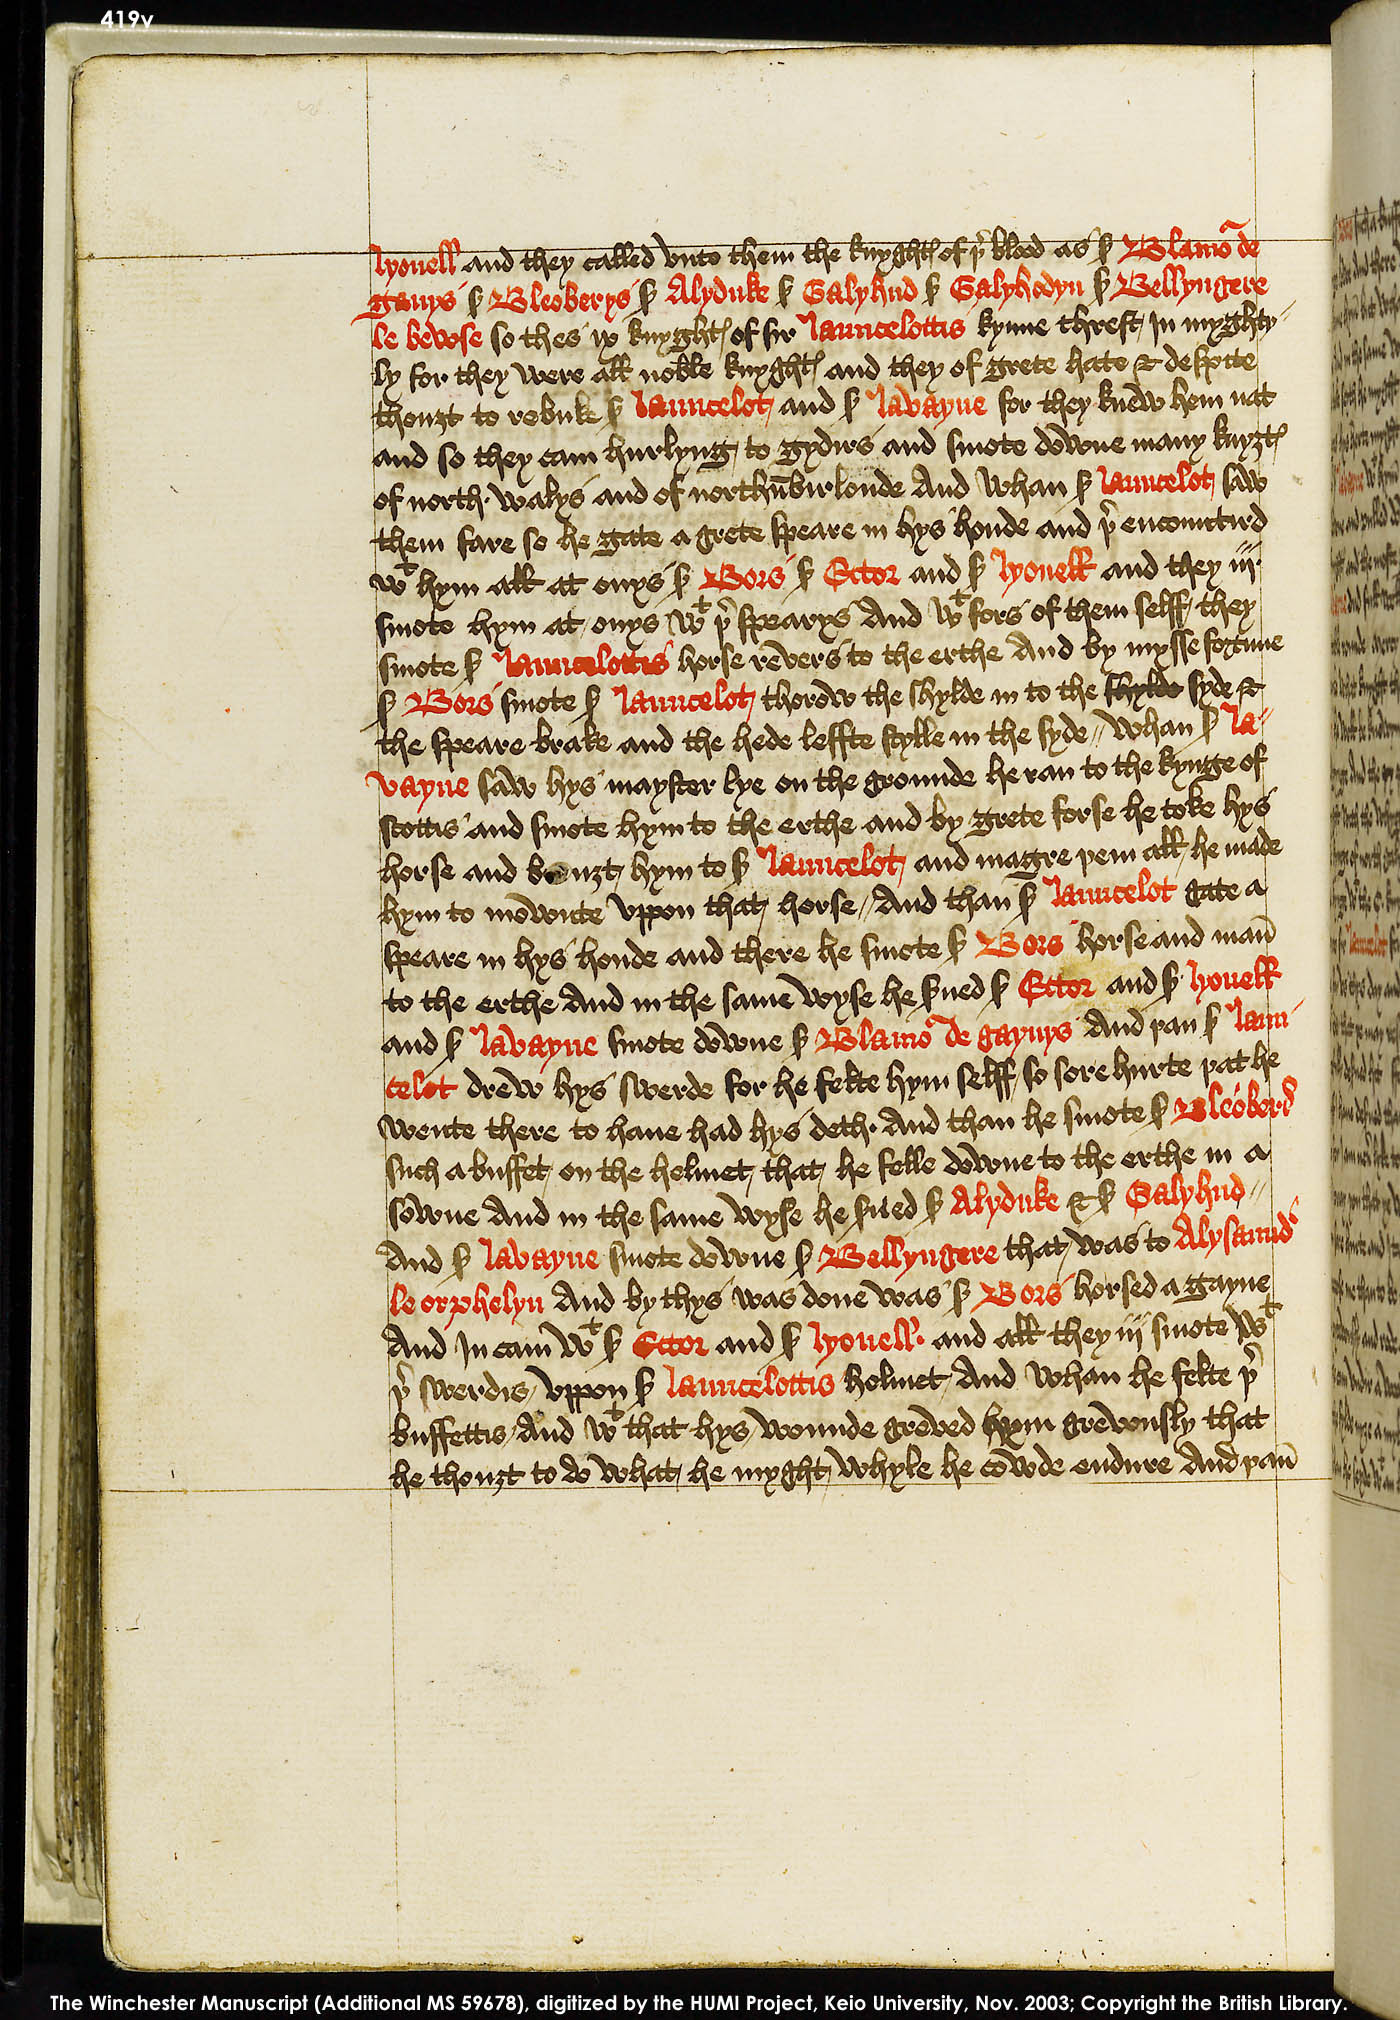 419v
lyonell and they called vnto them the knyghtꝭ of þr blood as ẜ Blamo᷑ de
ganys ẜ Bleoberys ẜ Alyduke ẜ Galyhud ẜ Galyhodyn ẜ Bellyngere
le bewse so thes ix knyghtꝭ of sir launcelottis kynne threst In myghty-
ly for they were all noble knyghtꝭ and they of grete hate & despite
thouȝt to rebuke ẜ launcelot and ẜ lavayne for they knew hem nat
and so they cam hurlyng to gydirs and smote downe many knyȝtꝭ
of north walys and of northūbirlonde And whan ẜ launcelot saw
them fare so he gate a grete speare in hys honde and þr encountird
wt hym all at onys ẜ Bors ẜ Ector and ẜ lyonell and they iij
smote hym at onys wt þr spearys And wt fors of them selff they
smote ẜ launcelottis horse revers to the erthe And by mysse fortune
ẜ Bors smote ẜ launcelot thorow the shylde in to the shylde syde &
the speare brake and the hede leffte stylle in the syde // whan ẜ la-
vayne saw hys mayster lye on the grounde he ran to the kynge of
scottis and smote hym to the erthe and by grete forse he toke hys
horse and brouȝt hym to ẜ launcelot and magre þem all he made
hym to mownte vppon that horse // And than ẜ launcelot gate a
speare in hys honde and there he smote ẜ Bors horse and man̄
to the erthe And in the same wyse he ẜued ẜ Ector and ẜ lyonell
and ẜ lavayne smote downe ẜ Blamo᷑ de gaynys And þan ẜ laun
celot drew hys swerde for he felte hym selff so sore hurte þat he
wente there to haue had hys deth. And than he smote ẜ Bleoberꝭ
such a buffet on the helmet that he felle downe to the erthe in a
sowne And in the same wyse he ẜued ẜ Alyduke & ẜ Galyhud //
And ẜ lavayne smote downe ẜ Bellyngere that was to Alysaundꝭ
le orphelyn And by thys was done was ẜ Bors horsed a gayne
And In cam wt ẜ Ector and ẜ lyonell. and all they iij smote wt
þr swerdis vppon ẜ launcelottis helmet And whan he felte þr
buffettis And wt that hys wounde greved hym grevously that
he thouȝt to do what he myght whyle he cowde endure And þan̄
The Winchester Manuscript (Additional MS 59678), digitized by the HUMI Project, Keio University, Nov. 2003; Copyright the British Library.